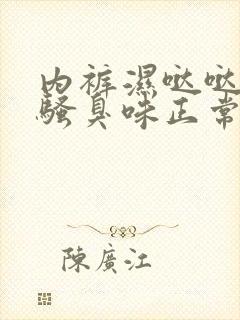 内裤濕哒哒
騷臭味正常
陳廣江